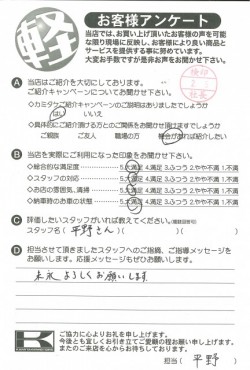 軽
お客様アンケート
当店では、お買い上げ頂いたお客様の声を可能
な限り現場に反映し、お客様により良い商品と
サービスを提供する事に努めています。
大変お手数ですが是非お声をお聞かせ下さい。
検印
社長
A 当店はご紹介を大切にしております。
ご紹介キャンペーンについてお聞かせ下さい
◇カミタケご紹介キャンペーンの説明はありましたでしょうか
はい いいえ
◇具体的にご紹介頂ける方との関係をお聞かせ頂けますでしょうか
ご親戚 ご友人 職場の方 機会があれば紹介したい
B 当店を実際にご利用になった印象をお聞かせ下さい。
◇総合的な満足度 5.大満足 4.満足 3.ふつう 2.やや不満 1.不満
◇スタッフの対応 5.大満足 4.満足 3.ふつう 2.やや不満 1.不満
◇お店の雰囲気、清掃 5.大満足 4.満足 3.ふつう 2.やや不満 1.不満
◇納車時のお車の状態 5.大満足 4.満足 3.ふつう 2.やや不満 1.不満
C 評価したいスタッフがいれば教えてください。(複数回答可)
スタッフ名( 平野さん )
D 担当させて頂きましたスタッフへのご指摘、ご指導メッセージを
お願いします。ぜひお聞かせ下さい。
末永よろしくお願いします
K
ご協力に心よりお礼を申し上げます。
今後とも宜しくお引き立てご愛顧の程お願い申し上げます。
またのご来店を心からお待ちしております。
担当( 平野 )